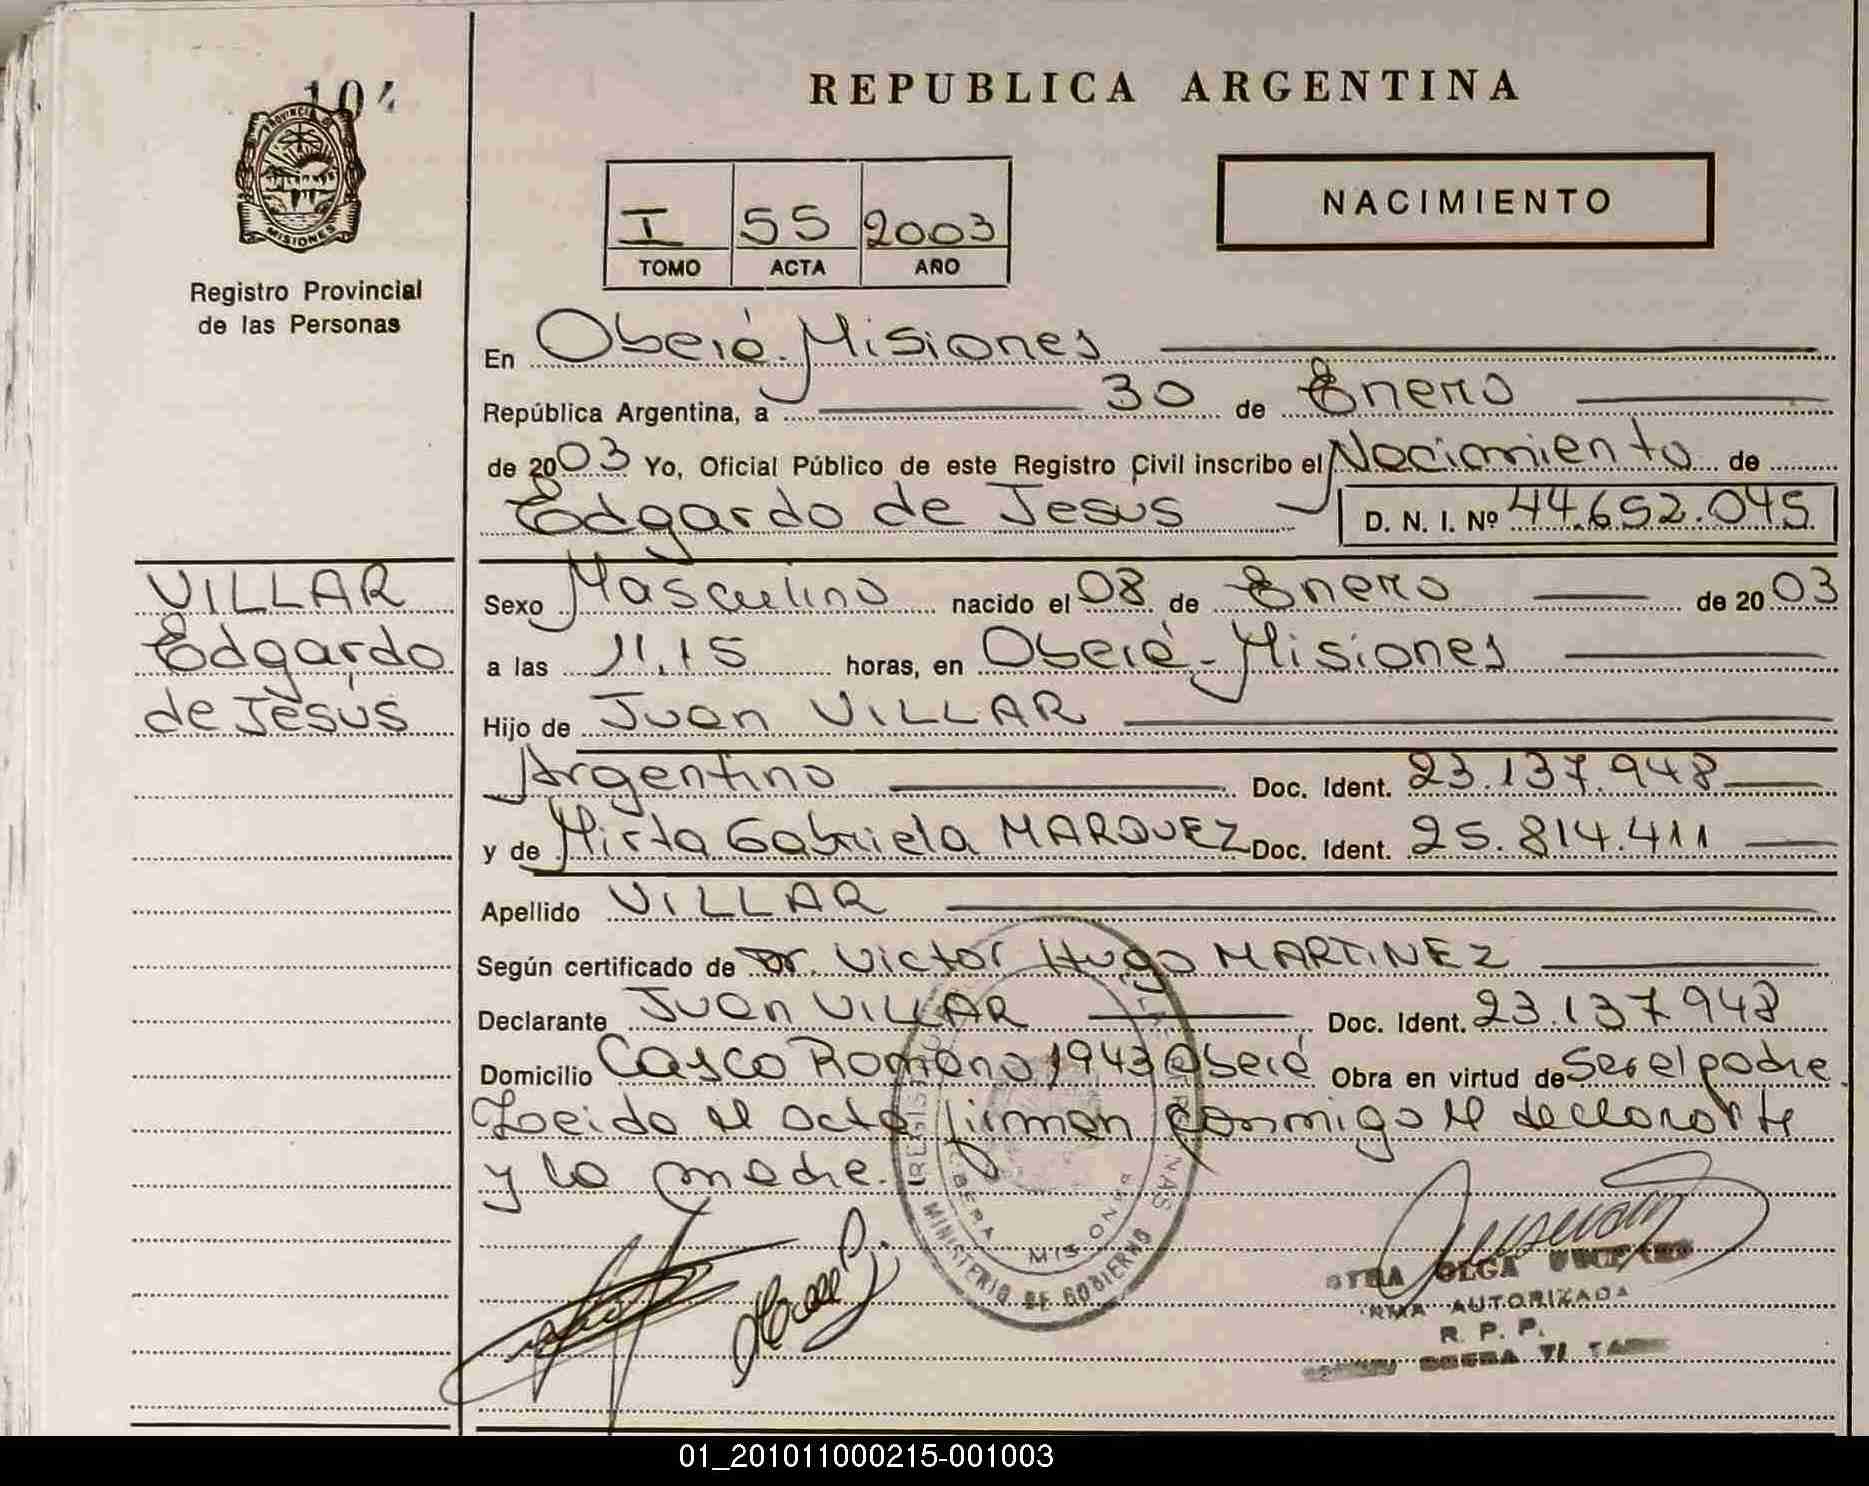 104
PROVINCIA DE
MISIONES
Registro Provincial
de las Personas
REPUBLICA ARGENTINA
I 55 2003
TOMO ACTA AÑO
NACIMIENTO
En Oberá - Misiones
República Argentina, a 30 de Enero
de 2003 Yo, Oficial Público de este Registro Civil inscribo el Nacimiento de
Edgardo de Jesus D. N. I. Nº 44.652.045
VILLAR
Edgardo
de Jesús
Sexo Masculino nacido el 08 de Enero de 2003
a las 11.15 horas, en Oberá - Misiones
Hijo de Juan VILLAR
Argentino Doc. Ident. 23.137.948
y de Mirta Gabriela MARQUEZ Doc. Ident. 25.814.411
Apellido VILLAR
Según certificado de Dr. Victor Hugo MARTINEZ
Declarante Juan VILLAR Doc. Ident. 23.137.948
Domicilio Casco Romano 1943 Oberá Obra en virtud de Ser el padre
Leida el acta firman conmigo el declarante
y la madre.
MINISTERIO DE GOBIERNO
OBERA MISIONES
OLGA
AUTORIZADA
R. P. P.
01_201011000215-001003